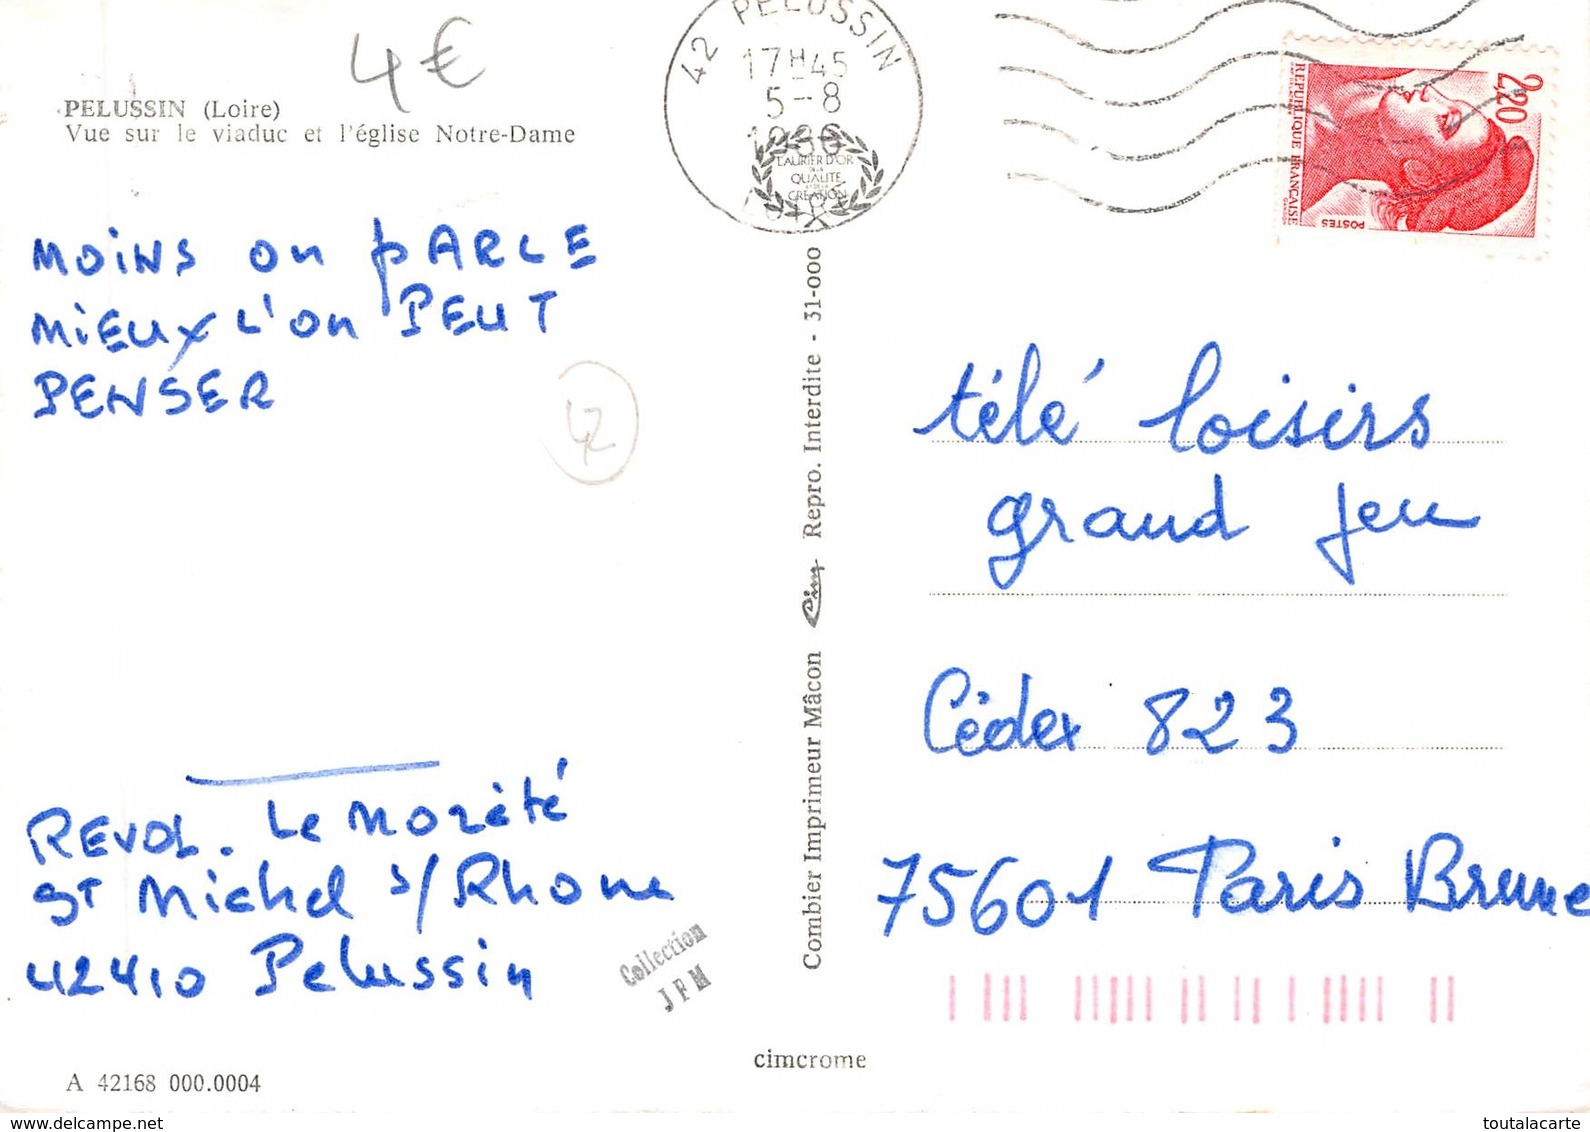 4€
PELUSSIN (Loire)
Vue sur le viaduc et l'église Notre-Dame
MOINS on PARLE
MIEUX L'on PEUT
PENSER
42
REVOL. Le Mozété
ST Michel s/Rhone
42410 Pelussin
Collection
JFM
A 42168 000.0004
42 PELUSSIN
17H45
5-8
1986
LOIRE
LAURIER D'OR
DE LA
QUALITE
ET DE LA
CREATION
Combier Imprimeur Mâcon Cim Repro. Interdite - 31-000
cimcrome
2,20
REPUBLIQUE FRANÇAISE
POSTES
GANDON
télé loisirs
grand jeu
Cédex 823
75601 Paris Brune
www.delcampe.net
toutalacarte